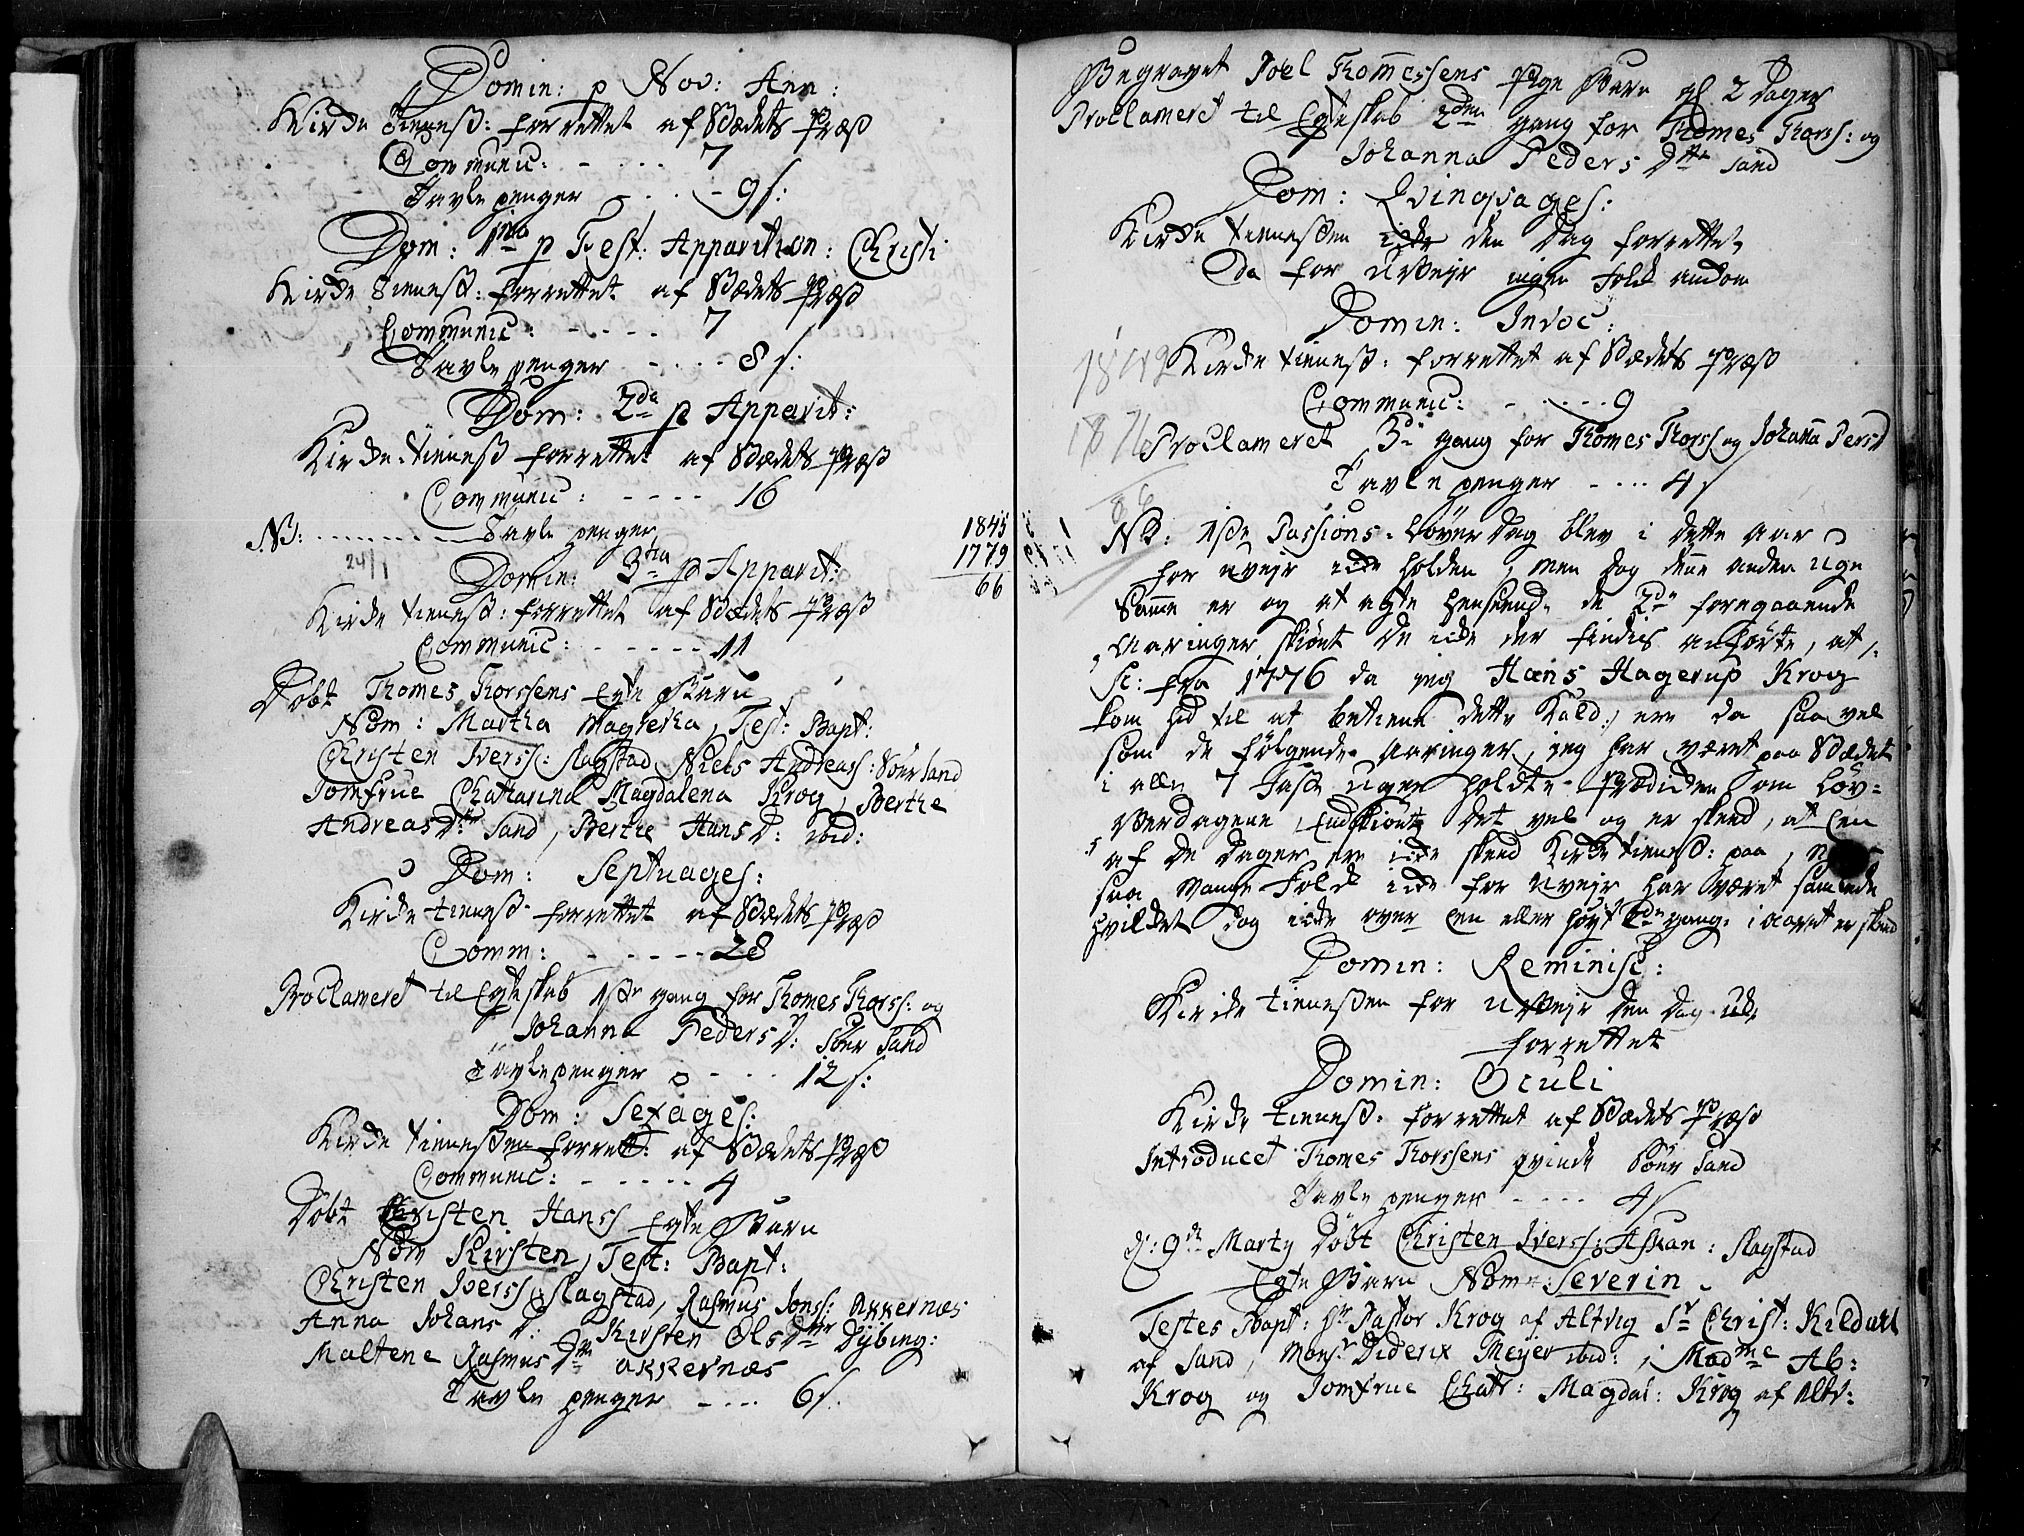 Domin: p Nov: Ann:
Kirke Tienest: forrettet af Stædets Præst
Communic: - - - - 7
Tavle penger - - - - 9 s:
Dom: 1ma p Fest: Apparition: Christi
Kirke Tienest: forrettet af Stædets Præst
Communic: - - - - 7
Tavle penger - - - - 8 s:
Dom: 2da p Apparit:
Kirke tienest forrettet af Stædets Præst
Communic: - - - - 16
NB: - - - - Tavle penger
1845
1779
66
24/1
Domin: 3tia p Apparit:
Kirke tienest: forrettet af Stædets Præst
Communic: - - - - - - 11
Døbt Thomes Thorssens Egte Barn
Nom: Martha Magreha, Test: Bapt:
Christen Iverss: Slagstad, Niels Andreass: Sørsand
Jomfrue Chatarina Magdalena Krog, Berthe
Andreas Dtr Sand, Berthe Hans D: ibid:
Dom: Septuages:
Kirke tienest forrettet af Stædets Præst
Comm: - - - - - - 28
Proclameret til Egteskab 1ste gang for Thomes Thorss: og
Johanna Peders D: Sør Sand
Tavlepenger - - - 12 s:
Dom: Sexages:
Kirke tienesten forrett: af Stædets Præst
Communic: - - - - - 4
Døbt Christen Hanss Egte Barn
Nom Kirsten, Test: Bapt:
Christen Iverss: Slagstad, Rasmus Jonss: Akkernæs
Anna Johans D: Kirsten Ols Dtr Dybing:
Maltene Rasmus Dtr Akkernæs
Tavle penger - - - 6 s.
Begravet Joel Thomessens Pige Barn gl 2 Dager
Proclameret til Egteskab 2den gang for Thomes Thorss: og
Johanna Peders Dttr Sand
Dom: Qvinqvages:
Kirke tienesten icke den Dag forrettet
da for Uveyr ingen Folk ankom
Domin: Invoc:
Kirke tienest: forrettet af Stædets Præst
Communic: - - - - 9
Proclameret 3die gang for Thomes Thorss og Johanna Persd
Tavle penger - - - 4 s
NB: 1ste Passions-Løverdag blev i dette Aar
for uveyr icke holden, men dog denne anden Uge
samme er og at agte henseende de 2de foregaaende
Aaringer skiønt de icke der findes anførte, at
sc: fra 1776 da jeg Hans Hagerup Krog
kom hid til at betiene dette Kald: ere da saa vel
som de følgende Aaringer, jeg har været paa Stædet
i alle 7 Faste Uger holdte Prædicken om Løv-
verdagene, Endskiønt det vel og er skeed, at Een
af de Dager ere icke skeed Kircke tienest: paa,
saa mange Folk icke for Uveyr har været samlede
hvilket dog icke over Een eller høyt 2de gang i aaret er skeed
Domin: Reminisc:
Kircke tienesten for Uveyr den Dag icke
forrettet
Domin: Oculi
Kirke tienest: forrettet af Stædets Præst
Introducet Thomes Thorssens qvinde Sør Sand
Tavle penger - - - - 4 s
d: 9de Marty Døbt Christen Iverss: Askan: Slagstad
Egte Barn Nom: Severin
Testes Bapt: Hr Pastor Krog af Altvig Sr Christ: Kildahl
af Sand, Monsr Diderix Meyer ibid:, Madme Ab:
Krog og Jomfrue Chatr: Magdal: Krog af Altv: